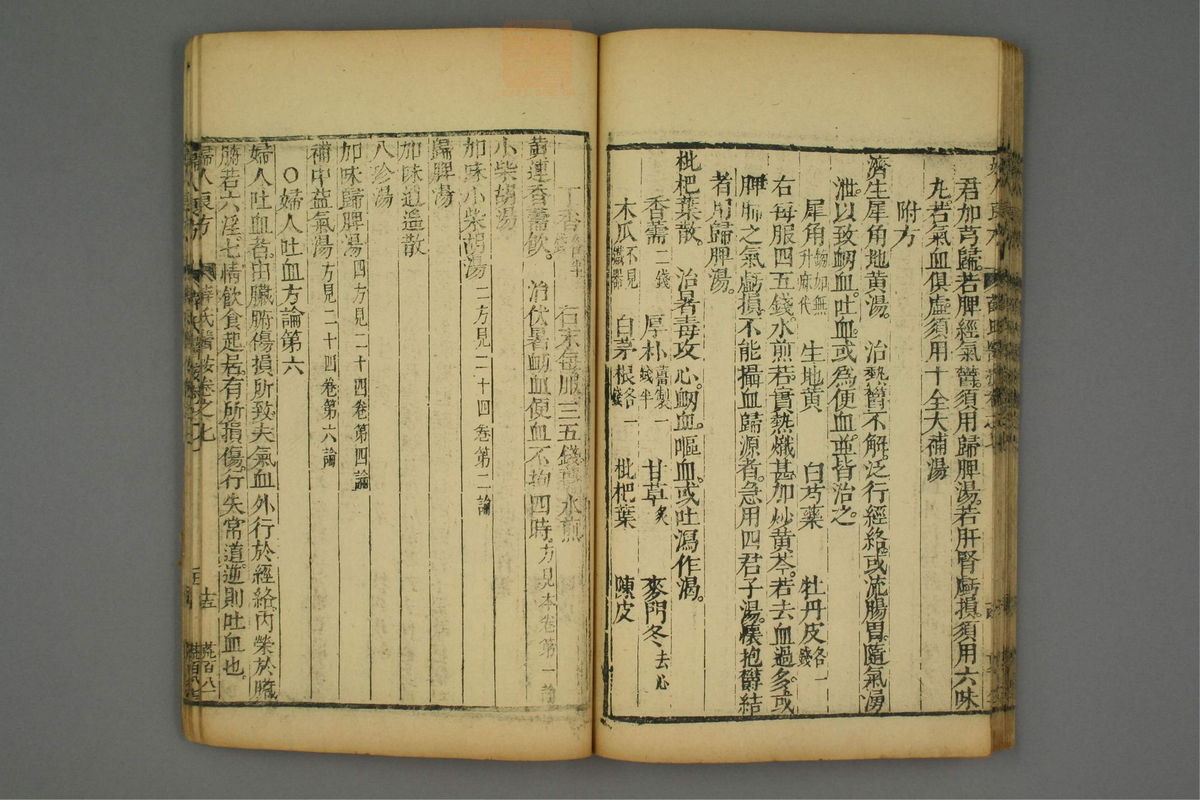 君加芎歸若脾經氣鬱須用歸脾湯若肝腎虧損須用六味
丸若氣血俱虛須用十全大補湯
附方
濟生犀角地黃湯 治熱鬱不解泛行經絡或流腸胃隨氣湧
泄以致衂血吐血或為便血並皆治之
犀角 如無升麻代 生地黃 白芍藥 牡丹皮 各一錢
右每服四五錢水煎若實熱熾甚加炒黃芩若去血過多或
脾肺之氣虧損不能攝血歸源者急用四君子湯懷抱鬱結
者用歸脾湯
枇杷葉散 治暑毒攻心衂血嘔血或吐瀉作渴
香薷 二錢 厚朴 薑製一錢半 甘草 炙 麥門冬 去心
木瓜 不見 白茅根 各一錢 枇杷葉 陳皮
丁香 右末每服三五錢 水煎
黃連香薷飲 治伏暑衂血便血不拘四時 方見本卷第一論
小柴胡湯
加味小柴胡湯 二方見二十四卷第二論
歸脾湯
加味逍遙散
八珍湯
加味歸脾湯 四方見二十四卷第四論
補中益氣湯 方見二十四卷第六論
○婦人吐血方論第六
婦人吐血者由臟腑傷損所致夫氣血外行於經絡內榮於臟
腑若六淫七情飲食起居有所損傷行失常道逆則吐血也
婦人良方 薛氏醫按卷之七